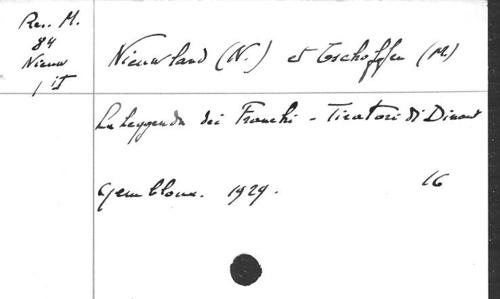 Res. M.
84
Nieuw
1 it
Nieuwland (N.) et Tschoffen (M)
La Leggenda dei Franchi - Tiratori di Dinant
Gembloux. 1929. 16